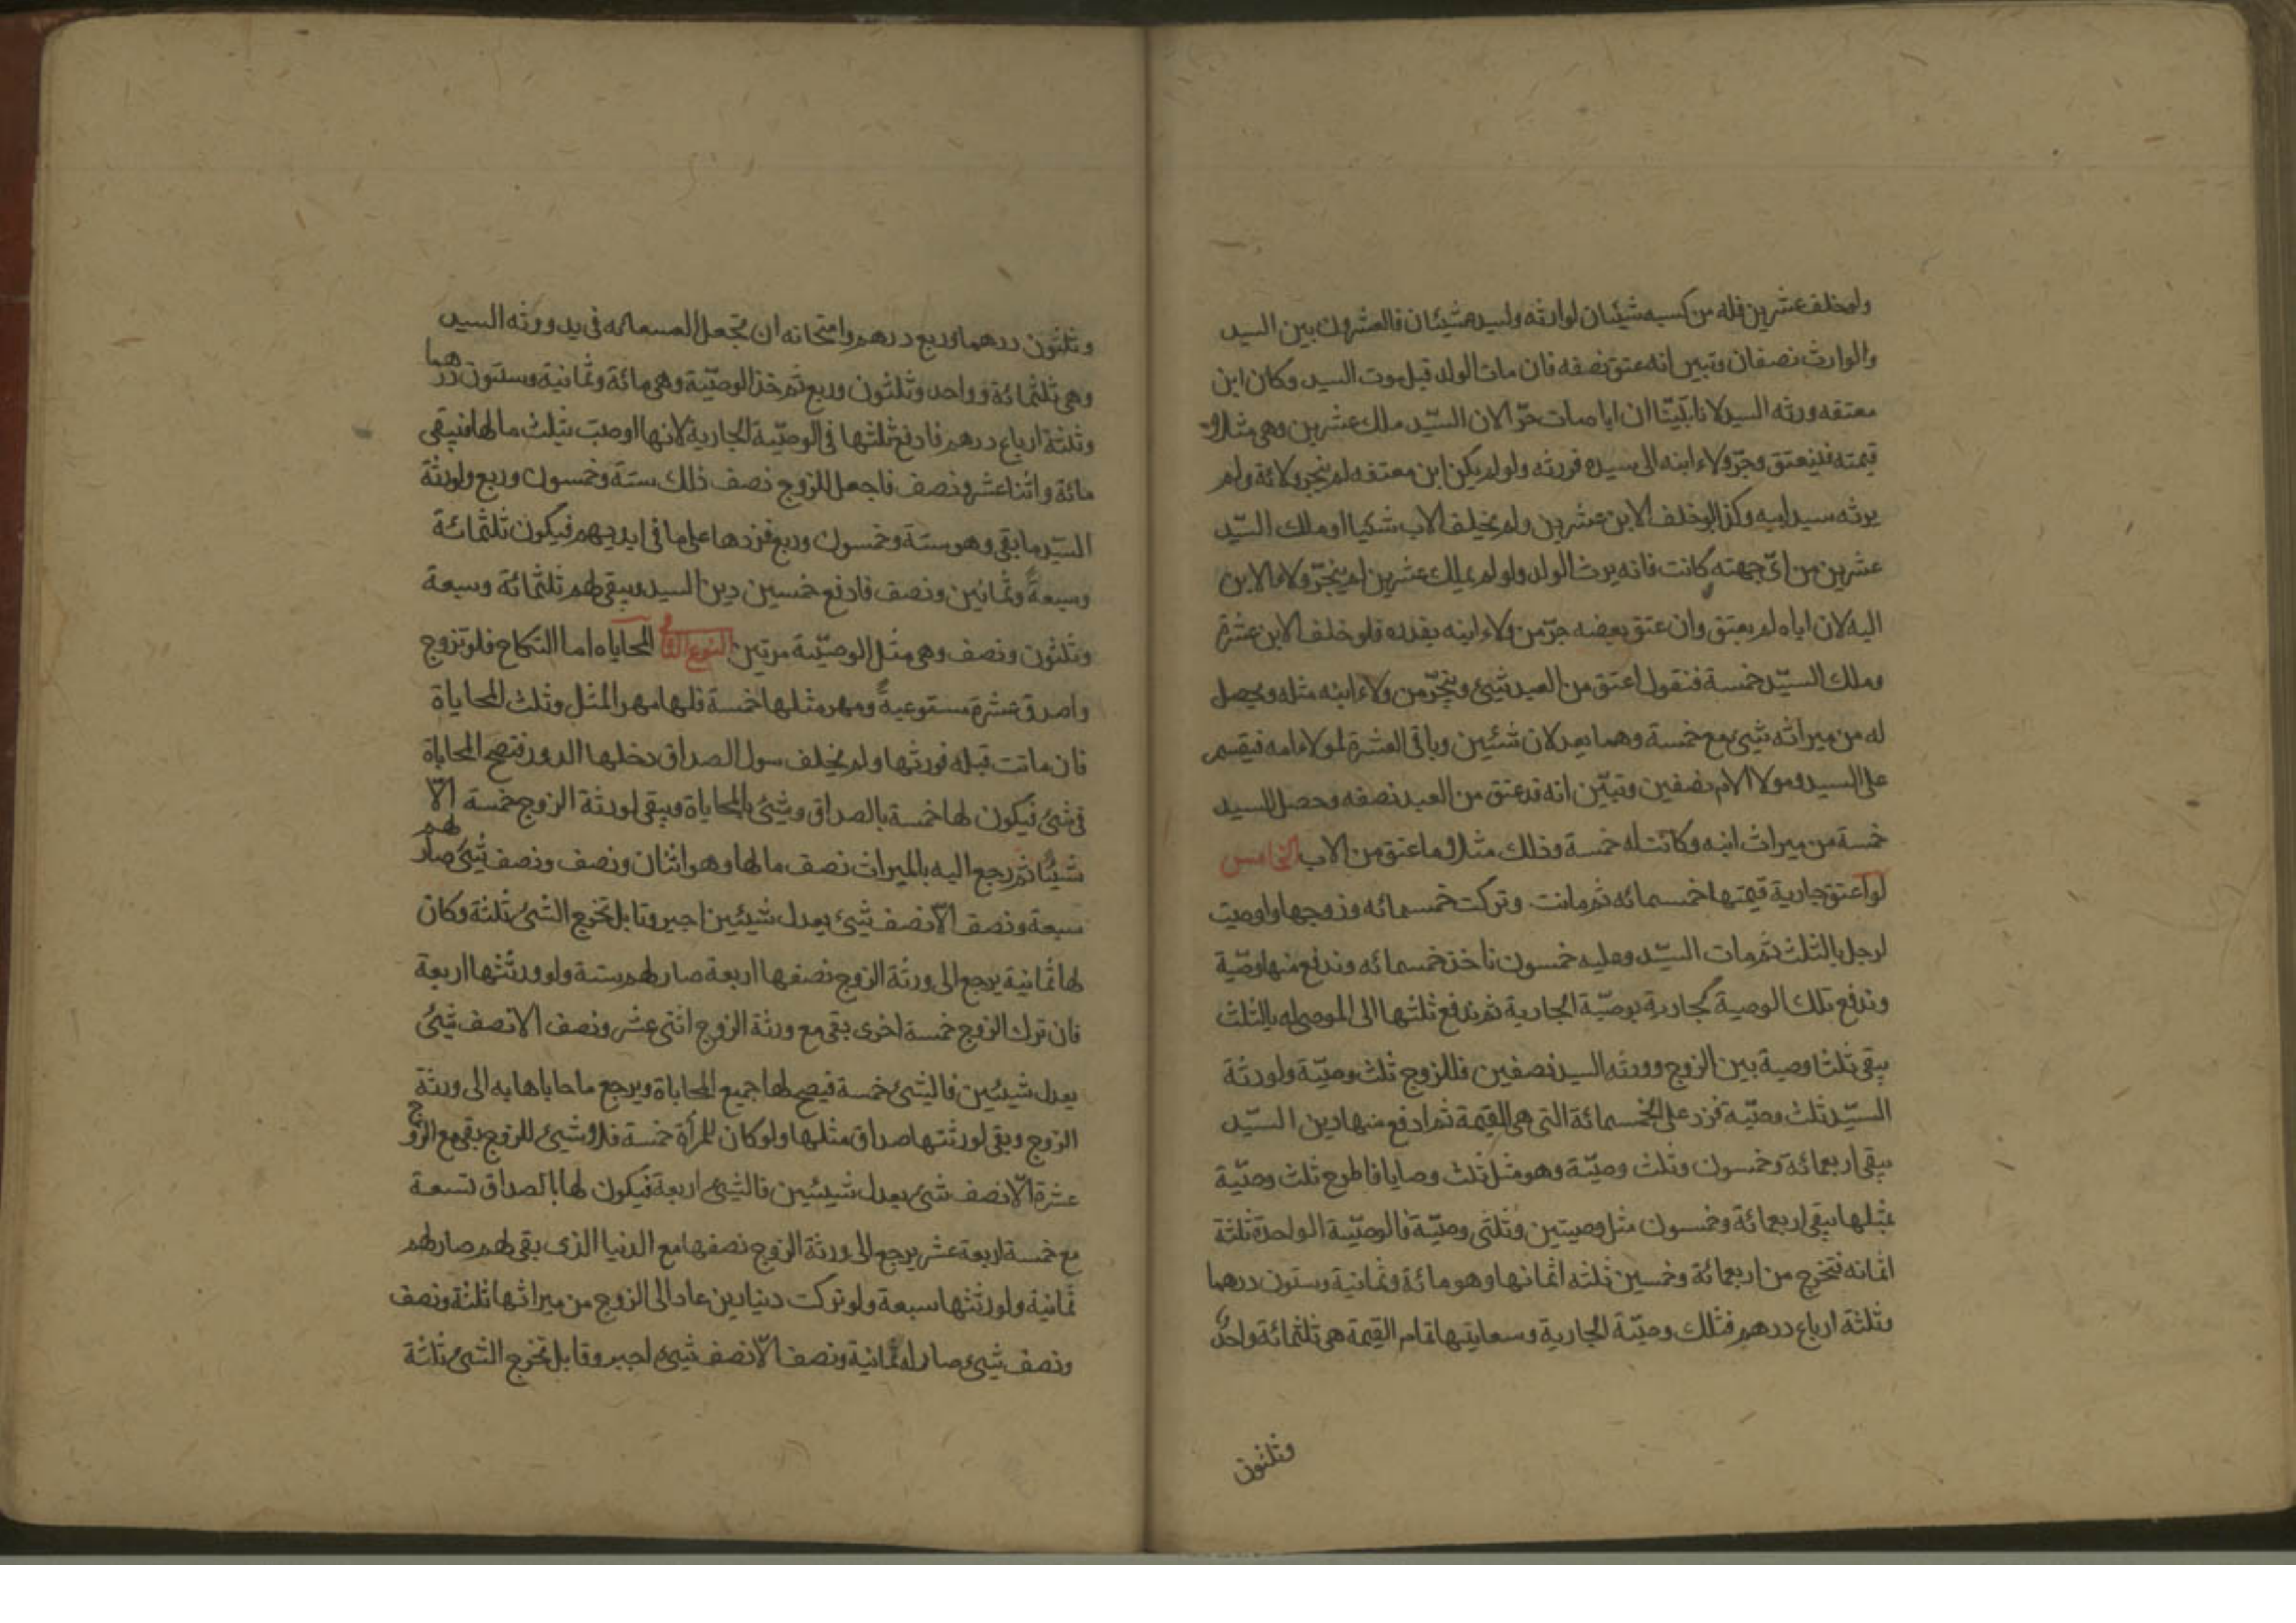 ولو خلف عشرين فله من كسبه شيئان لوارثه ولسيده شيئان فالعشرون بين السيد
والوارث نصفان وتبين انه عتق نصفه فان مات الولد قبل موت السيد وكان ابن
معتقه ورثه السيد لانا تبيّنّا ان اباه مات حرّا لان السيّد ملك عشرين وهى مثلا
قيمته فيعتق وجرّ ولاء ابنه الى سيده فورثه ولو لم يكن ابن معتقه لم ينجر ولائه ولم
يرثه سيد ابيه وكذا لو خلف الابن عشرين ولم يخلف الاب شيئا او ملك السيّد
عشرين من اىّ جهته كانت فانه يرث الولد ولو لم يملك عشرين لم ينجرّ ولاء الابن
اليه لان اباه لم يعتق وان عتق بعضه جرّ من ولاء ابنه بقدره فلو خلف الابن عشرة
وملك السيّد خمسة فنقول اعتق من العبد شيئ وينجرّ من ولاء ابنه مثله ويحصل
له من ميراثه شيئ مع خمسة وهما يعدلان شئين وباقى العشرة لمولا امه فيقسم
على السيد ومولا الام نصفين وتبيّن انه قد عتق من العبد نصفه وحصل للسيد
خمسة من ميراث ابنه وكانت له خمسة وذلك مثلا ما عتق من الاب الخامس
لو اعتق جارية قيمتها خمسمائه ثم ماتت وتركت خمسمائه وزوجها واوصت
لرجل بالثلث ثم مات السيّد وعليه خمسون ناخذ خمسمائه وندفع منها وصّية
وندفع تلك الوصية لجارية بوصيّة الجارية ثم ندفع ثلثها الى الموصى له بالثلث
يبقى ثلثا وصية بين الزوج وورثه السيد نصفين فللزوج ثلث وصيّة ولورثة
السيّد ثلث وصيّة فزد على الخمسمائة التى هى القيمة ثم ادفع منها دين السيّد
يبقى اربعمائة وخمسون وثلث وصيّة وهو مثل ثلث وصايا فاطرح ثلث وصيّة
بمثلها يبقى اربعمائة وخمسون مثل وصيتين وثلثى وصيّة فالوصيّة الواحدة ثلثة
اثمانه فتخرج من اربعمائة وخمسين ثلثه اثمانها وهو مائة وثمانية وستون درهما
وثلثة ارباع درهم فتلك وصيّة الجارية وسعايتها تمام القيمة هى ثلثمائة واحد
وثلثون
وثلثون درهما وربع درهم وامتحانه ان تجعل فى يد وورثه السيد
وهى ثلثمائة وواحد وثلثون وربع ثم خذ الوصيّة وهى مائة وثمانية وستون درهما
وثلثة ارباع درهم فادفع ثلثها فى الوصيّة الجارية لانها اوصت بثلث مالها فيبقى
مائة واثنا عشر ونصف فاجعل للزوج نصف ذلك ستة وخمسون وربع ولورثة
السيّد ما بقى وهو ستة وخمسون وربع فزدها على ما فى ايديهم فيكون ثلثمائة
وسبعة وثمانين ونصف فادفع خمسين دين السيد ويبقى لهم ثلثمائة وسبعة
وثلثون ونصف وهى مثل الوصيّة مرتين النوع المحاباه اما النكاح فلو تزوج
واصدق عشرة مستوعبة ومهر مثلها خمسة فلها مهر المثل وثلث المحاباة
فان ماتت قبله فورثها ولم يخلف سوى الصداق دخلها الدور فتصح المحاباة
فى شئ فيكون لها خمسة بالصداق وشيئ بالمحاباة ويبقى لورثة الزوج خمسة الّا
شيئا ثم رجع اليه بالميراث نصف مالها وهو اثنان ونصف ونصف شيئ صار لهم
سبعة ونصف الّا نصف شيئ يعدل شيئين اجبر وقابل تخرج الشئ ثلثة وكان
لها ثمانية يرجع الى ورثة الزوج نصفها اربعة صار لهم ستة ولورثتها اربعة
فان ترك الزوج خمسة اخرى بقى مع ورثة الزوج اثنى عشر ونصف الا نصف شئ
يعدل شيئين فالشئ خمسة فيصح لها جميع المحاباة ويرجع ما حاباها به الى ورثة
الزوج وبقى لورثتها صداق مثلها ولو كان للمرأة خمسة ولا شيئ للزوج بقى مع الزوج
عشرة الّا نصف شئ يعدل شيئين فالشئ اربعة فيكون لها بالصداق تسعة
مع خمسة اربعة عشر يرجع الى ورثة الزوج نصفها مع الدنيا الذى بقى لهم صار لهم
ثمانية ولورثتها سبعة ولو تركت دينارين عاد الى الزوج من ميراثها ثلثة ونصف
ونصف شيئ صار له ثمانية ونصف الّا نصف شيئ اجبر وقابل تخرج الشئ ثلثة